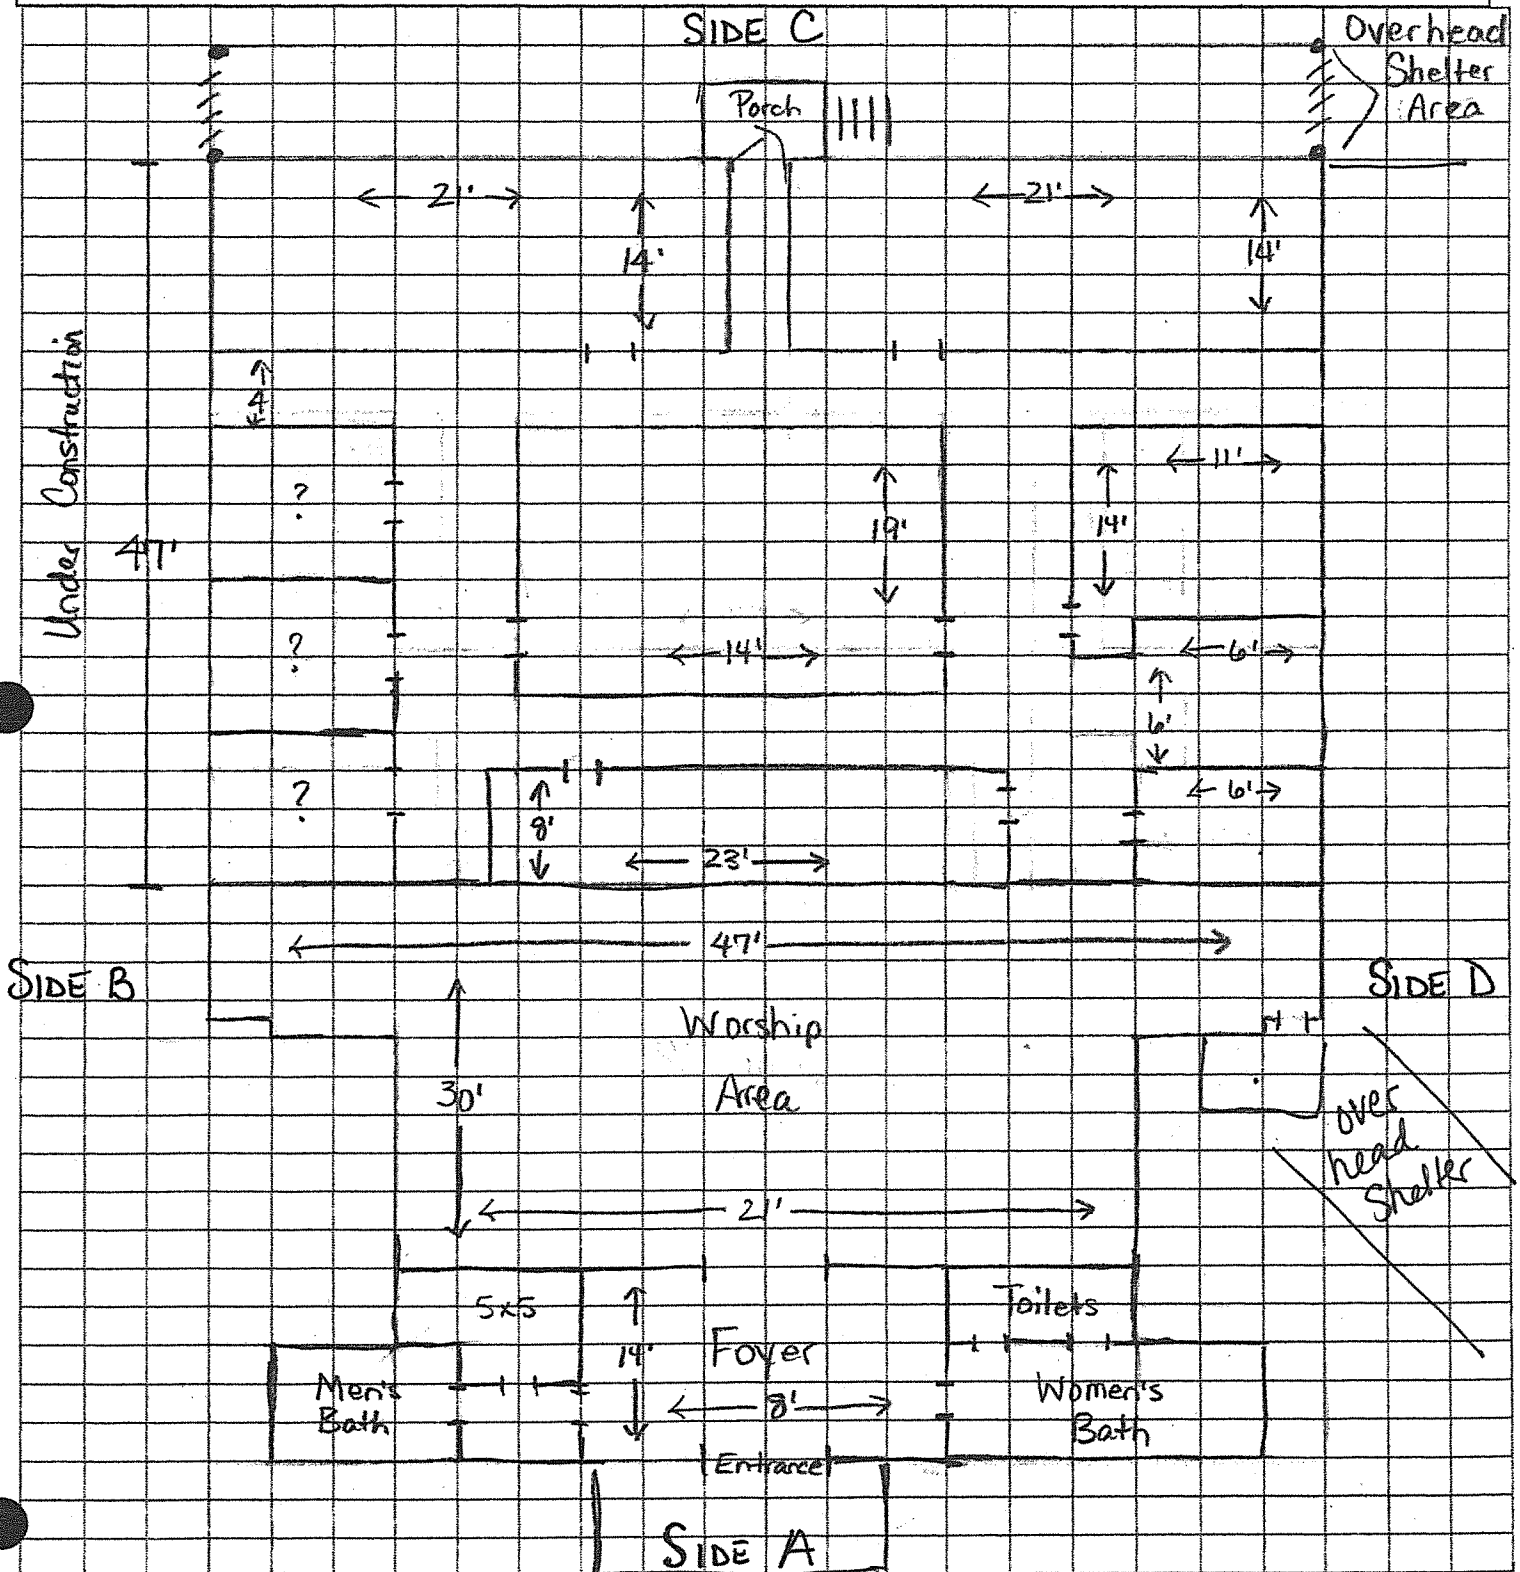 SIDE C
Overhead
Shelter
Area
Porch
21'
21'
14'
14'
4
Under Construction
11'
?
19'
14'
47'
?
14'
6'
6'
?
6'
8'
23'
47'
SIDE B
SIDE D
Worship
Area
30'
over
head
Shelter
21'
5x5
Toilets
14'
Foyer
Men's
Bath
8'
Women's
Bath
Entrance
SIDE A